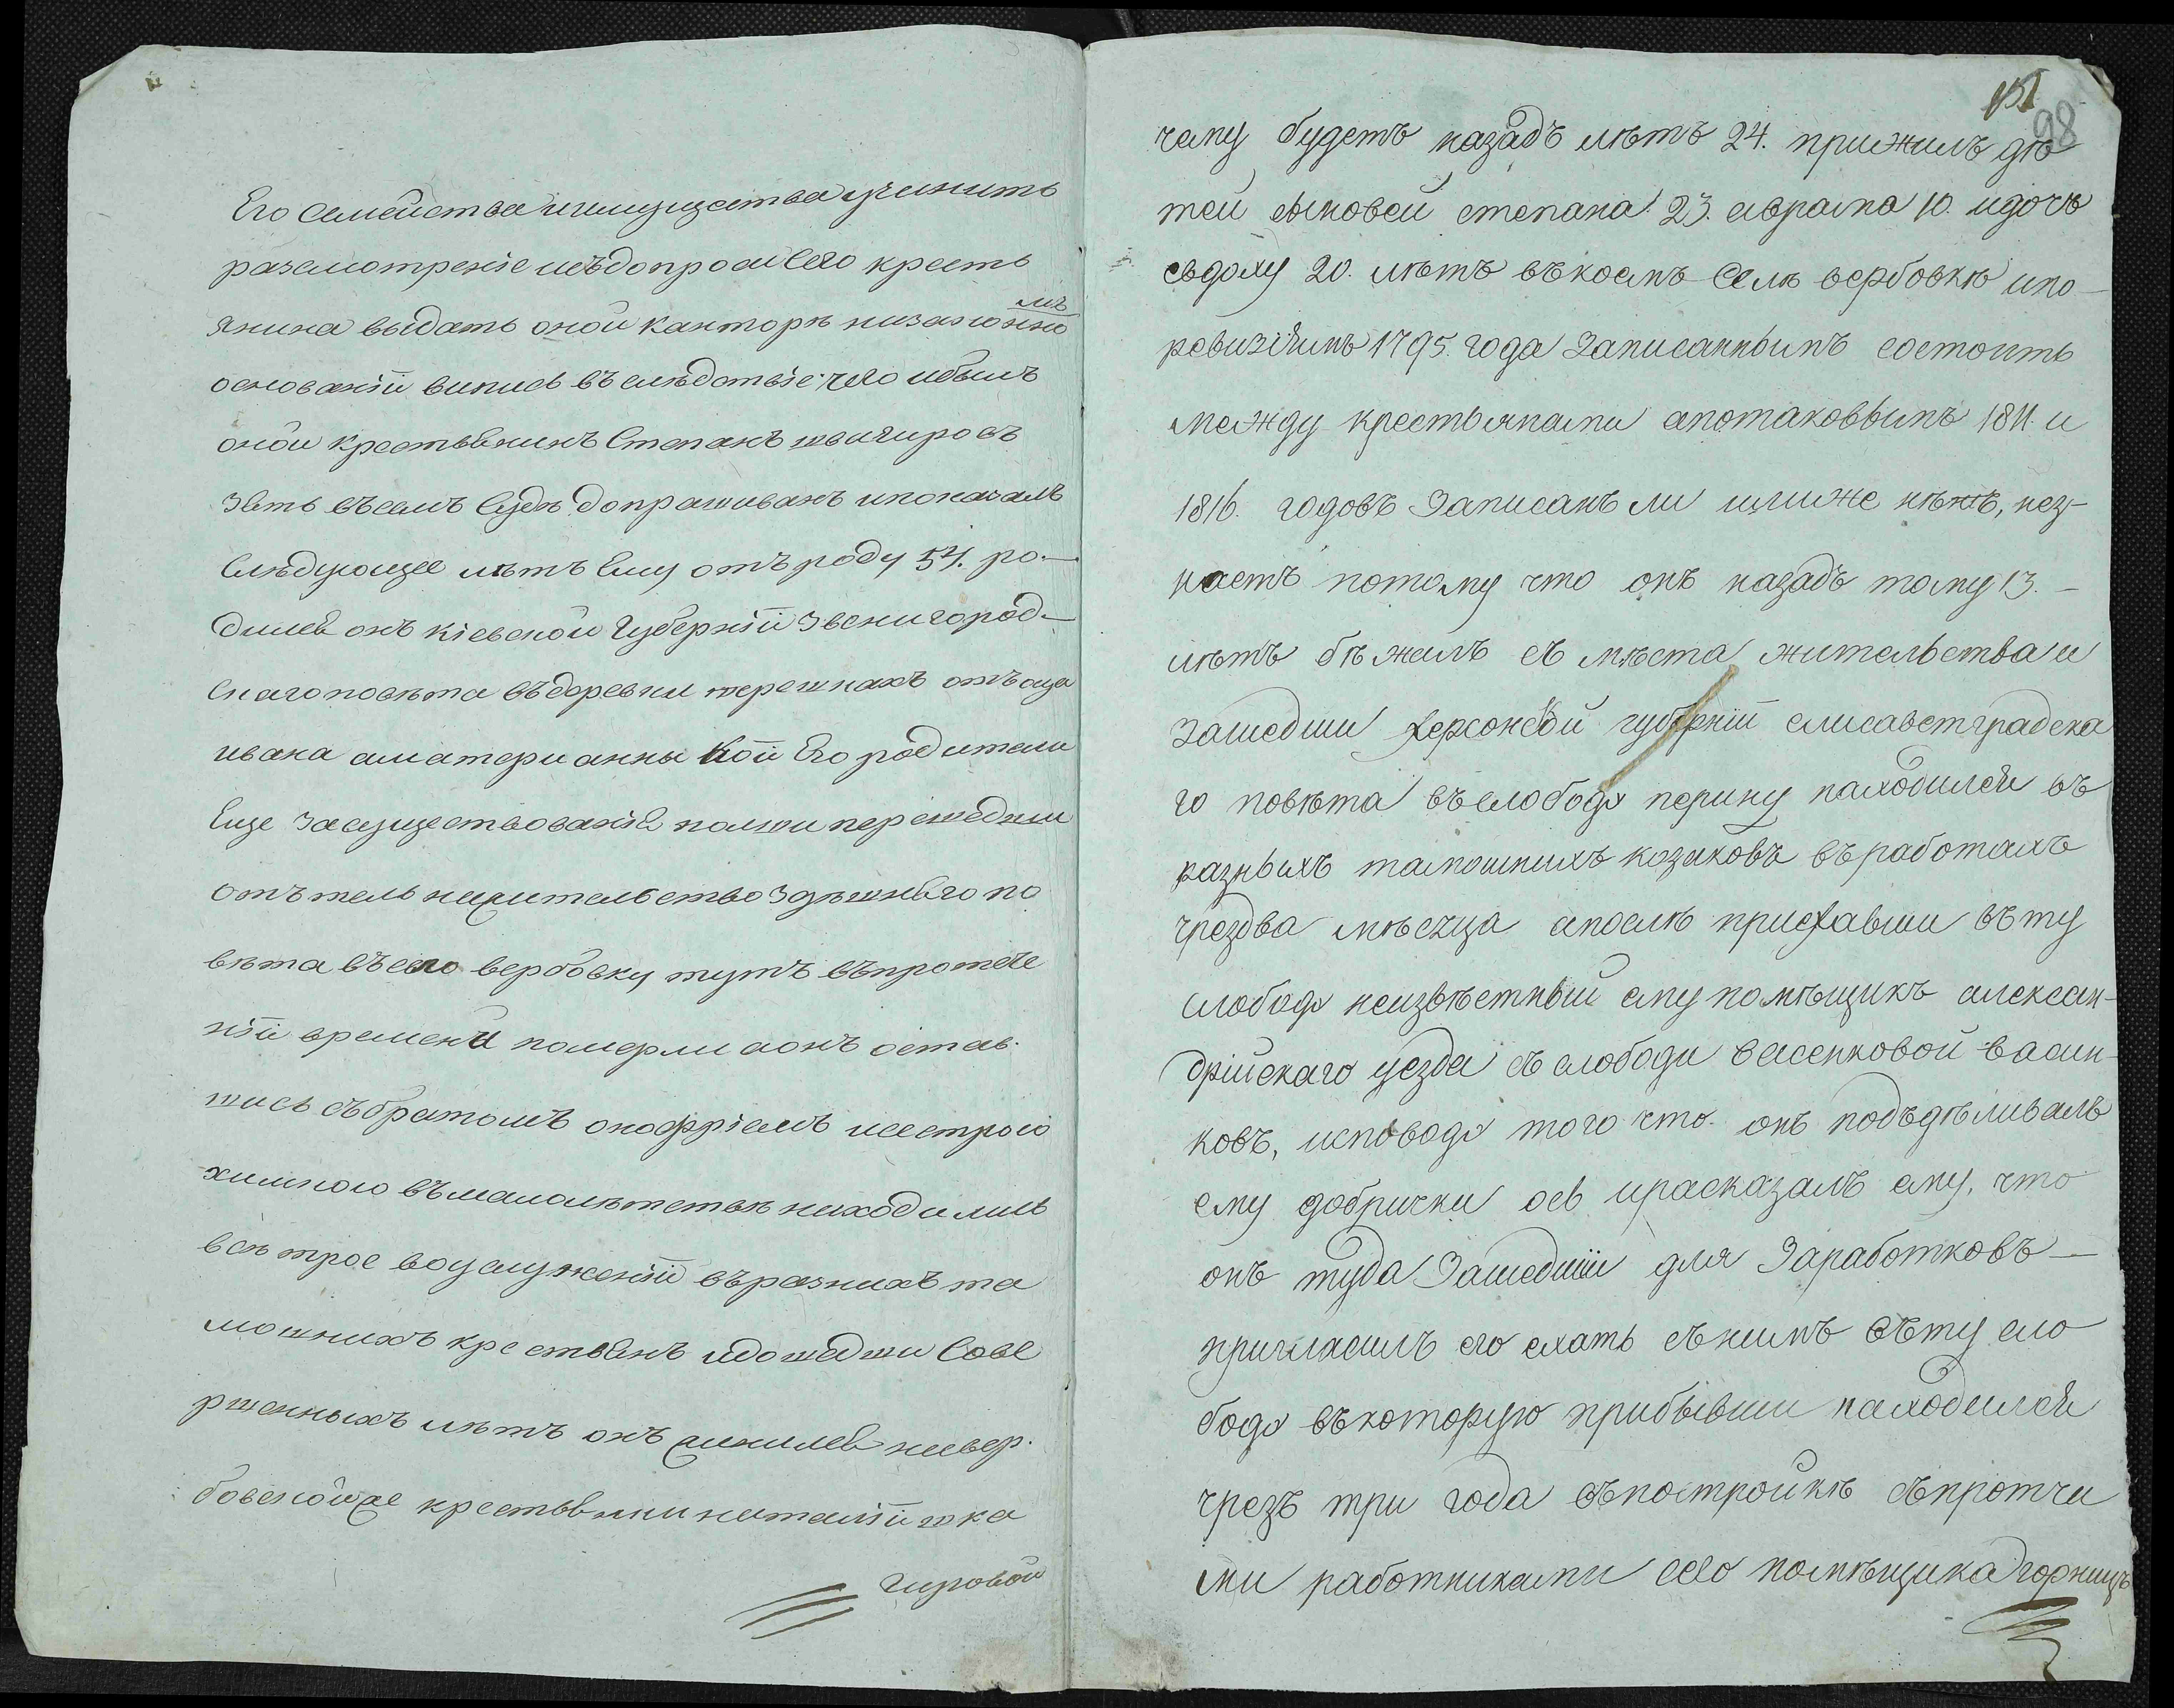 Его Семейства и имущества учинить
разсмотреніе изъ допроса Сего кресть
янина выдать оной канторѣ на законно
мъ
основаніи випись въ слѣдствіе чего и былъ
оной крестьянинъ Степанъ
зять въ семъ Судѣ допрашиванъ и показалъ
Слѣдующее лѣтъ Ему отъ роду 54. ро-
дился онъ кіевской Губерніи Звенигород-
скаго повѣта въ деревни терешкахъ отъ отца
ивана а матери анны кои Его родители
Еще за существованія полши перешедши
отътель на жительство Здѣшняго по
вѣта въ село вербовку тутъ въ протече
ніи времени померли а онъ остав-
шись съ братомъ онофріемъ и сестрою
химкою въ малолѣтствѣ находились
всѣ трое в оуслуженіи въ разнихъ та
мошнихъ крестьянъ и дошедши Сове
ршенныхъ лѣтъ онъ женился на вер-
бовской же крестьянки наталіи шка
гировой
151
98
чему будетъ назадъ лѣтъ 24. прижилъ дѣ
тей сыновей степана 23. аврама 10. и дочь
евдоху 20. лѣтъ въ коемъ Селѣ вербовкѣ и по-
ревизіямъ 1795. года Записаннымъ состоитъ
между крестьянами а по таковымъ 1811. и
1816. годовъ Записанъ ли или же нѣтъ, нез-
наетъ потому что онъ назадъ тому 13. -
лѣтъ бѣжалъ съ мѣста жительства и
Зашедши херсонской губерніи елисаветградска
го повѣта въ слободу перину находился въ
разныхъ тамошнихъ козаковъ въ работахъ
чрез два мѣсеца а послѣ приехавши въ ту
слободу неизвѣстный ему помѣщикъ алексан-
дрійскаго уезда съ слободи Васенковой Васин-
ковъ, и споводу того что онъ подъдѣливалъ
ему добрички ось и расказалъ ему, что
онъ туда Зашедши для Заработковъ -
пригласилъ его ехать съ нимъ въ ту сло
боду въ которую прибывши находился
чрезъ три года въ постройкѣ съ протчи
ми работниками сего помѣщика горницъ